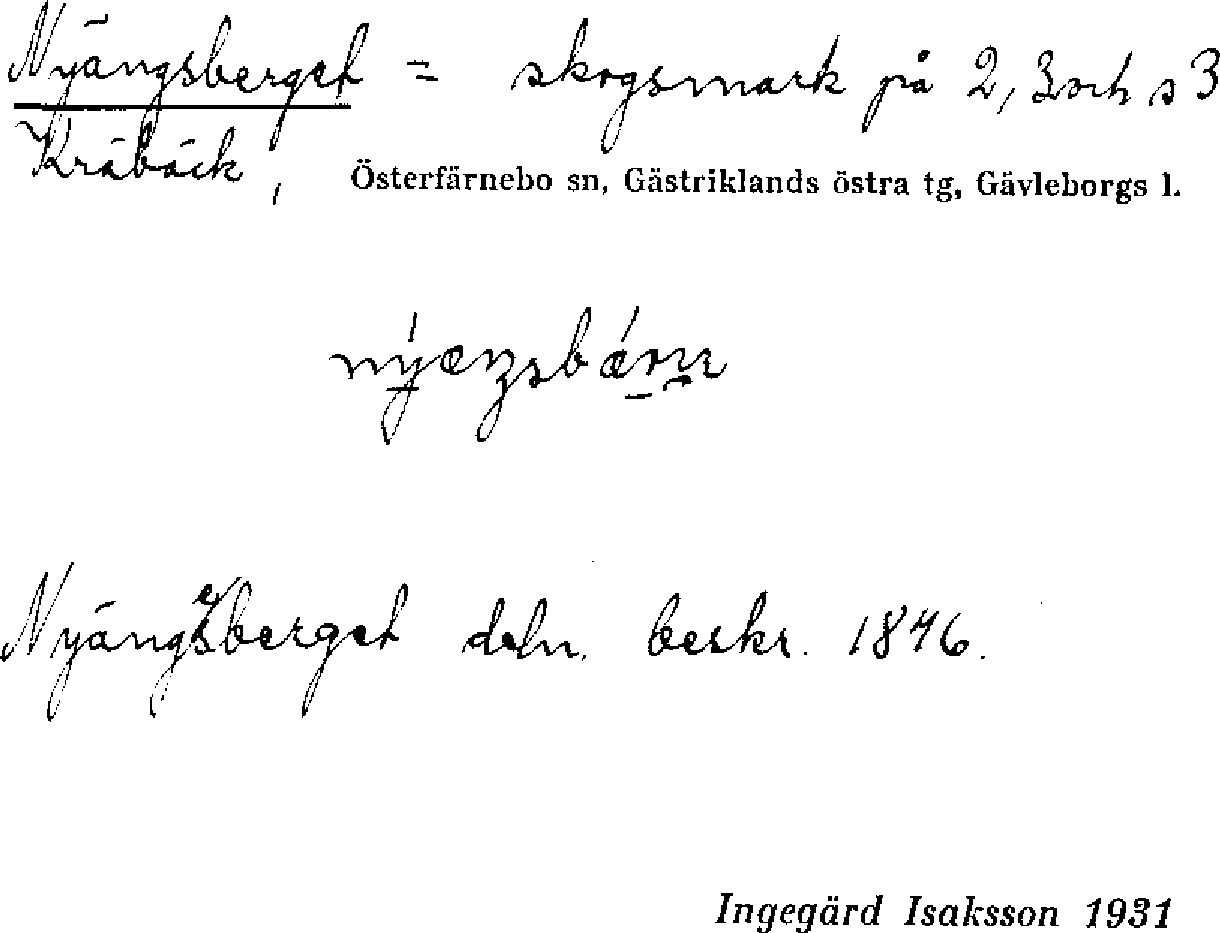 Nyängsberget = skogsmark på 2, 3 och s 3
Kräbäck, Österfärnebo sn, Gästriklands östra tg, Gävleborgs l.
Nyängsberget deln. beskr. 1846.
Ingegärd Isaksson 1931